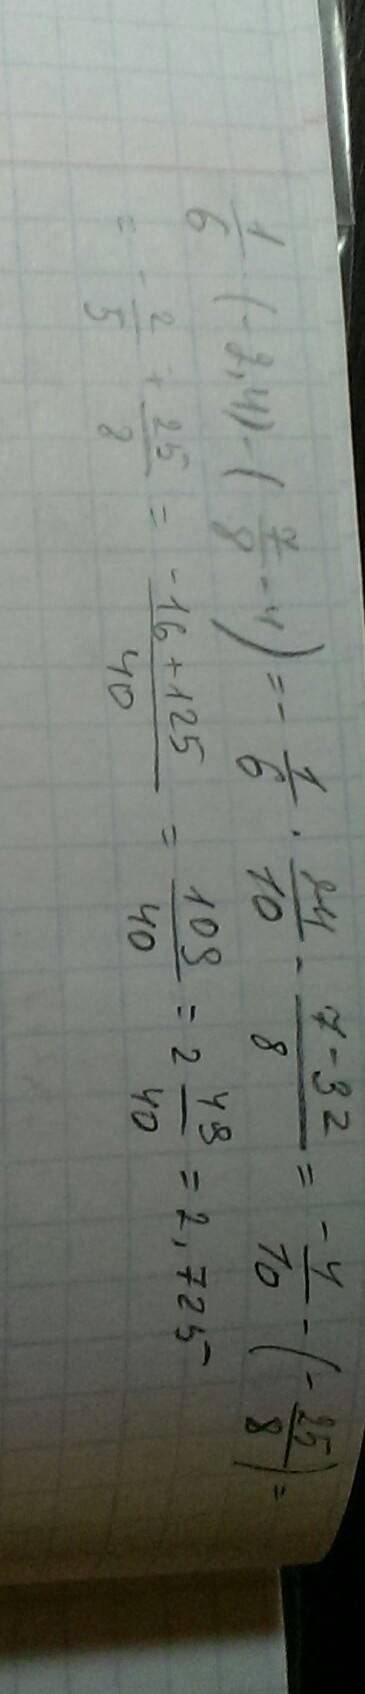 1/6 (-2,4) - (7/8 - 4) = - 1/6 · 24/10 - (7-32)/8 = - 4/10 - (- 25/8) =
= - 2/5 + 25/8 = (-16+125)/40 = 109/40 = 2 29/40 = 2,725